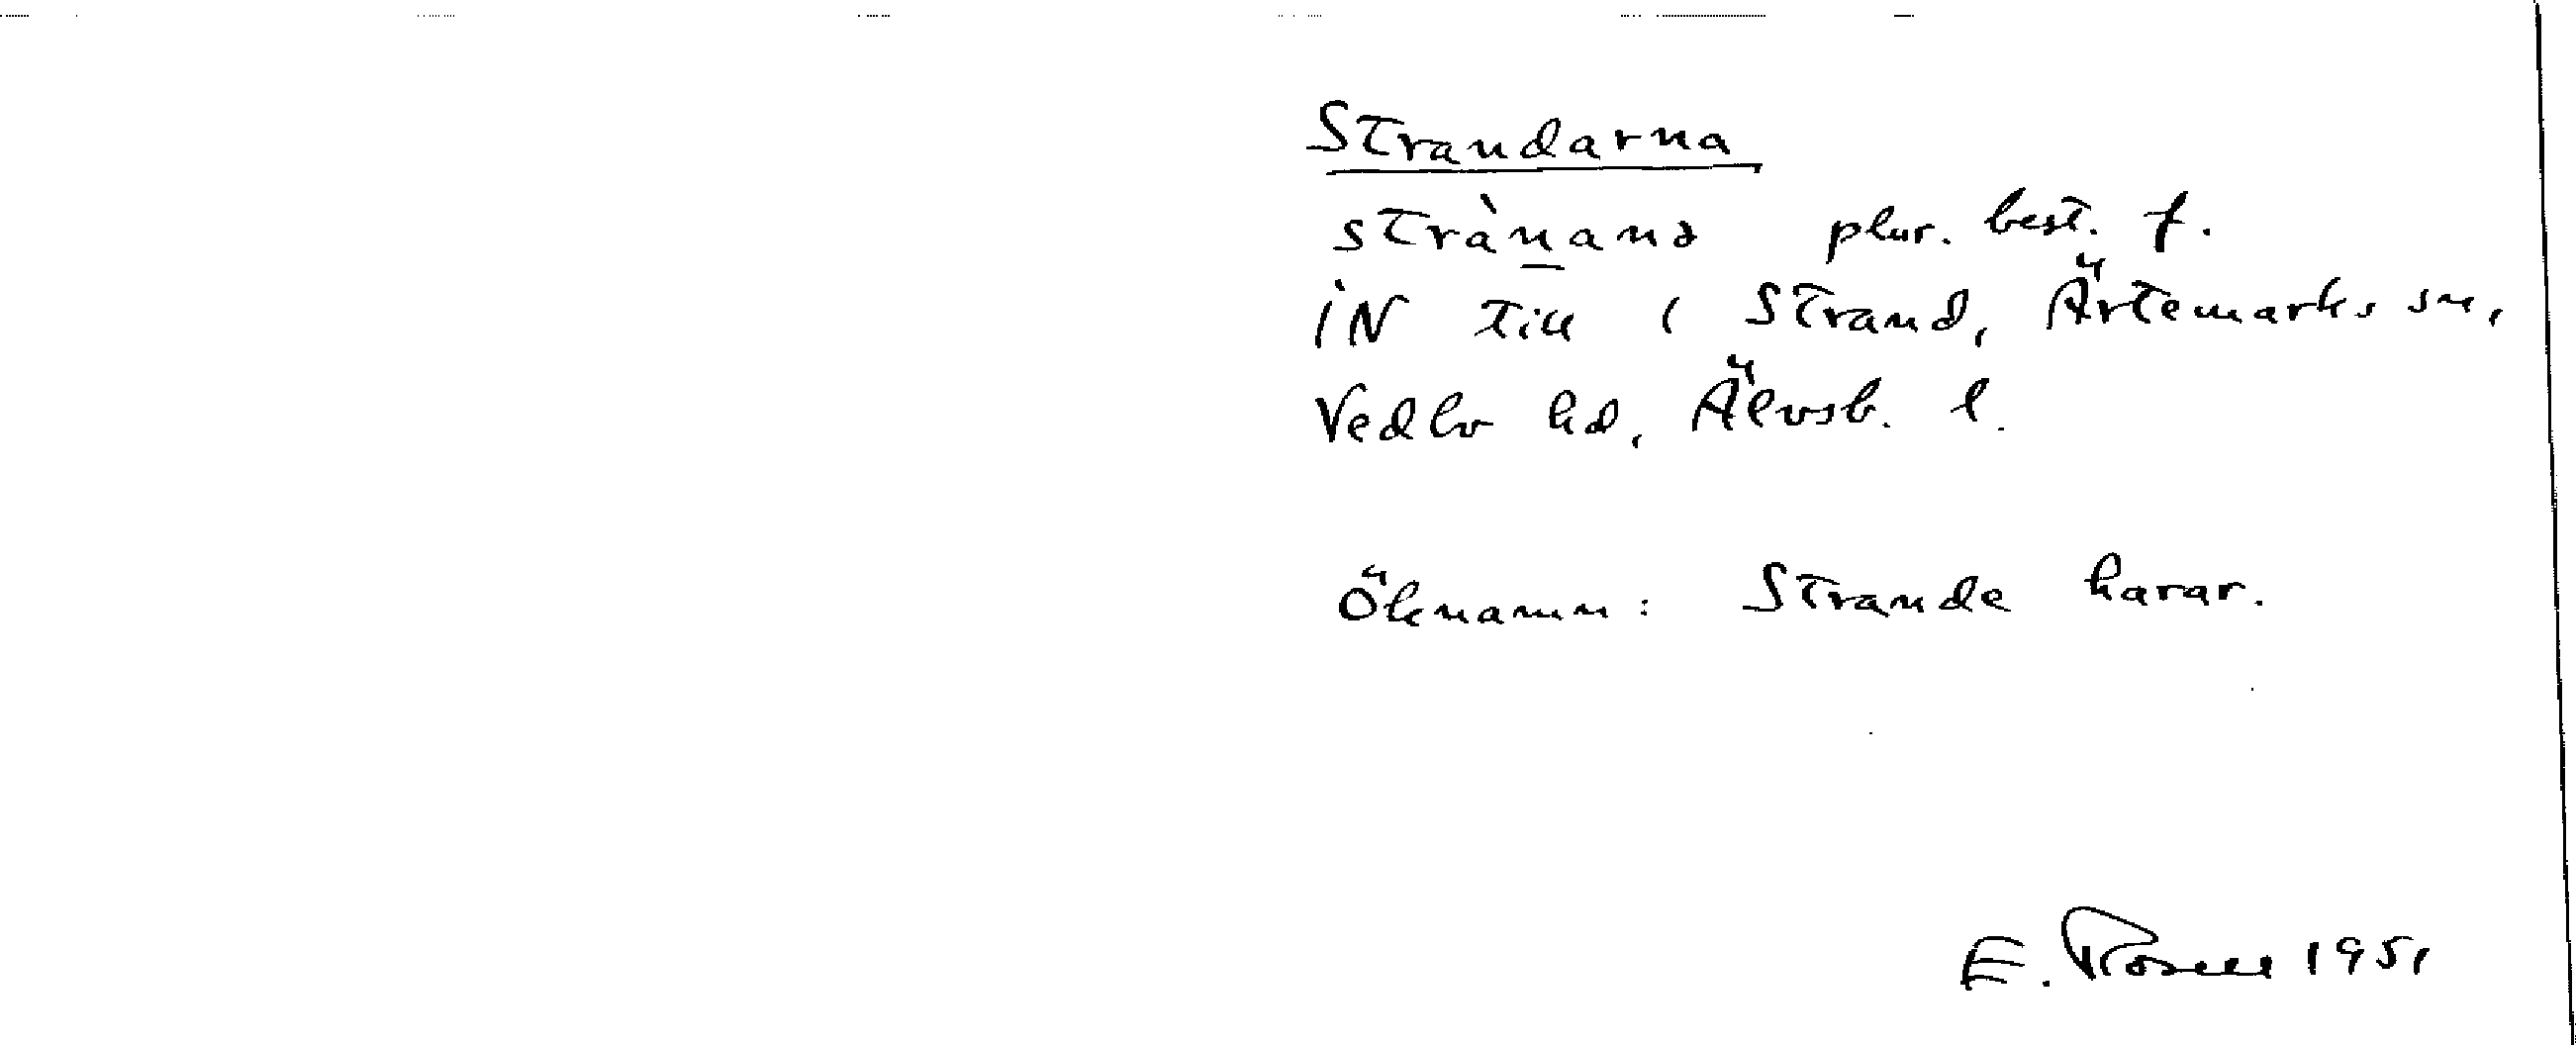 Strandarna
strànanə plur. best. f.
iN till ( Strand, Ärtemarks sn,
Vedbo hd, Älvsb. l.
Öknamn: Strande harar.
E. Rosell 1951